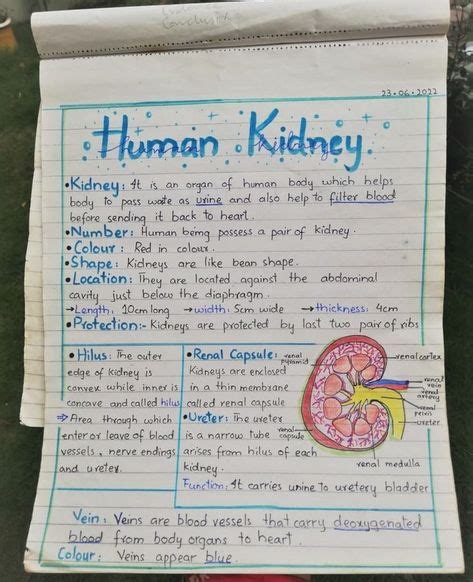 23.06.2022
Human Kidney.
•Kidney: It is an organ of human body which helps
body to pass waste as urine and also help to filter blood
before sending it back to heart.
•Number: Human being possess a pair of kidney.
•Colour: Red in colour.
•Shape: Kidneys are like bean shape.
•Location: They are located against the abdominal
cavity just below the diaphragm.
→Length: 10cm long →width: 5cm wide →thickness: 4cm
•Protection:- Kidneys are protected by last two pair of ribs
•Hilus: The outer
edge of kidney is
convex while inner is
concave and called hilus
⇒ Area through which
enter or leave of blood
vessels, nerve endings
and ureter.
•Renal Capsule:
Kidneys are enclosed
in a thin membrane
called renal capsule
•Ureter: The ureter
is a narrow tube
arises from hilus of each
kidney.
Function: It carries urine to uretery bladder
renal
pyramid
renal cortex
renal
vein
renal
artery
renal
pelvis
ureter
renal
capsule
renal medulla
Vein: Veins are blood vessels that carry deoxygenated
blood from body organs to heart.
Colour: Veins appear blue.